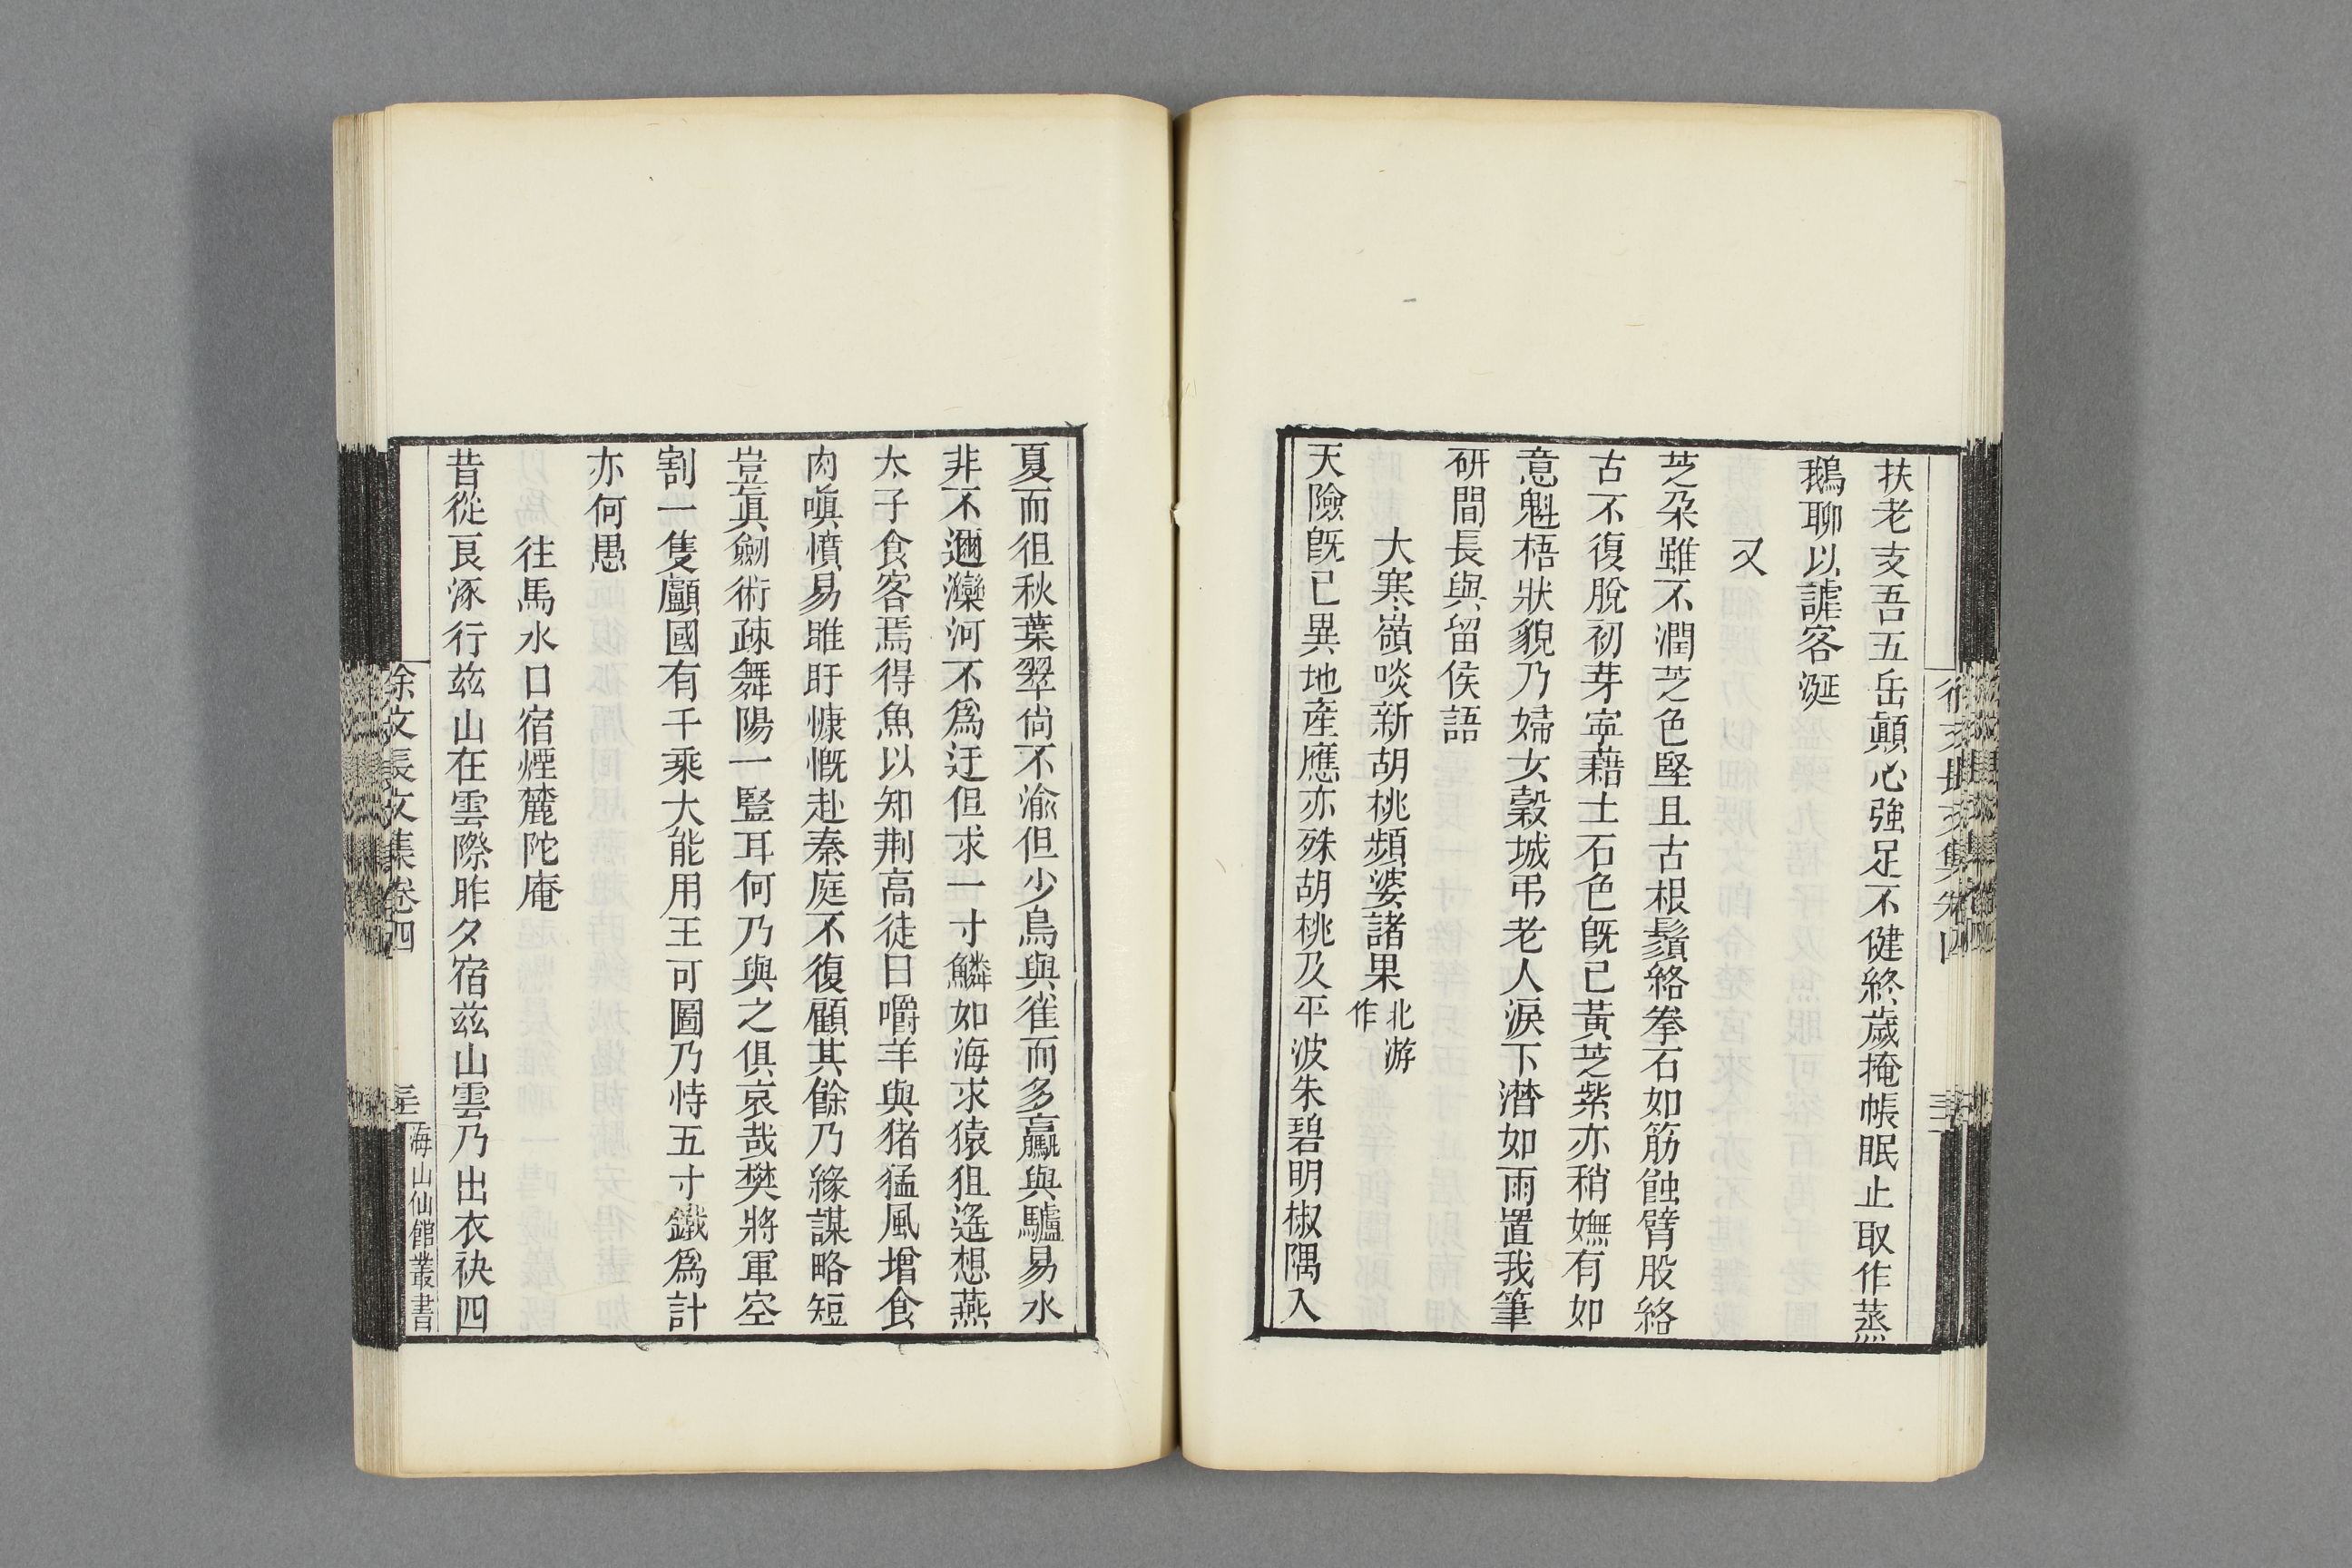 扶老支吾五岳顛心強足不健終歲掩帳眠止取作蒸
鵝聊以謔客涎
又
芝朶雖不潤芝色堅且古根鬚絡拳石如筋蝕臂股絡
古不復脫初芽寧藉土石色旣已黃芝紫亦稍嫵有如
意魁梧狀貌乃婦女穀城弔老人淚下潸如雨置我筆
研間長與留侯語
大寒嶺啖新胡桃頻婆諸果北游作
天險旣已異地產應亦殊胡桃及平波朱碧明椒隅入
夏而徂秋葉翠尙不渝但少鳥與雀而多驘與驢易水
非不邇灤河不爲迂但求一寸鱗如海求猿狙遙想燕
太子食客焉得魚以知荆高徒日嚼羊與猪猛風增食
肉嗔憤易睢盱慷慨赴秦庭不復顧其餘乃緣謀略短
豈眞劒術疎舞陽一豎耳何乃與之俱哀哉樊將軍空
割一隻顱國有千乘大能用王可圖乃恃五寸鐵爲計
亦何愚
往馬水口宿煙麓陀庵
昔從良涿行兹山在雲際昨夕宿兹山雲乃出衣袂四
徐文長文集卷四
海山仙館叢書